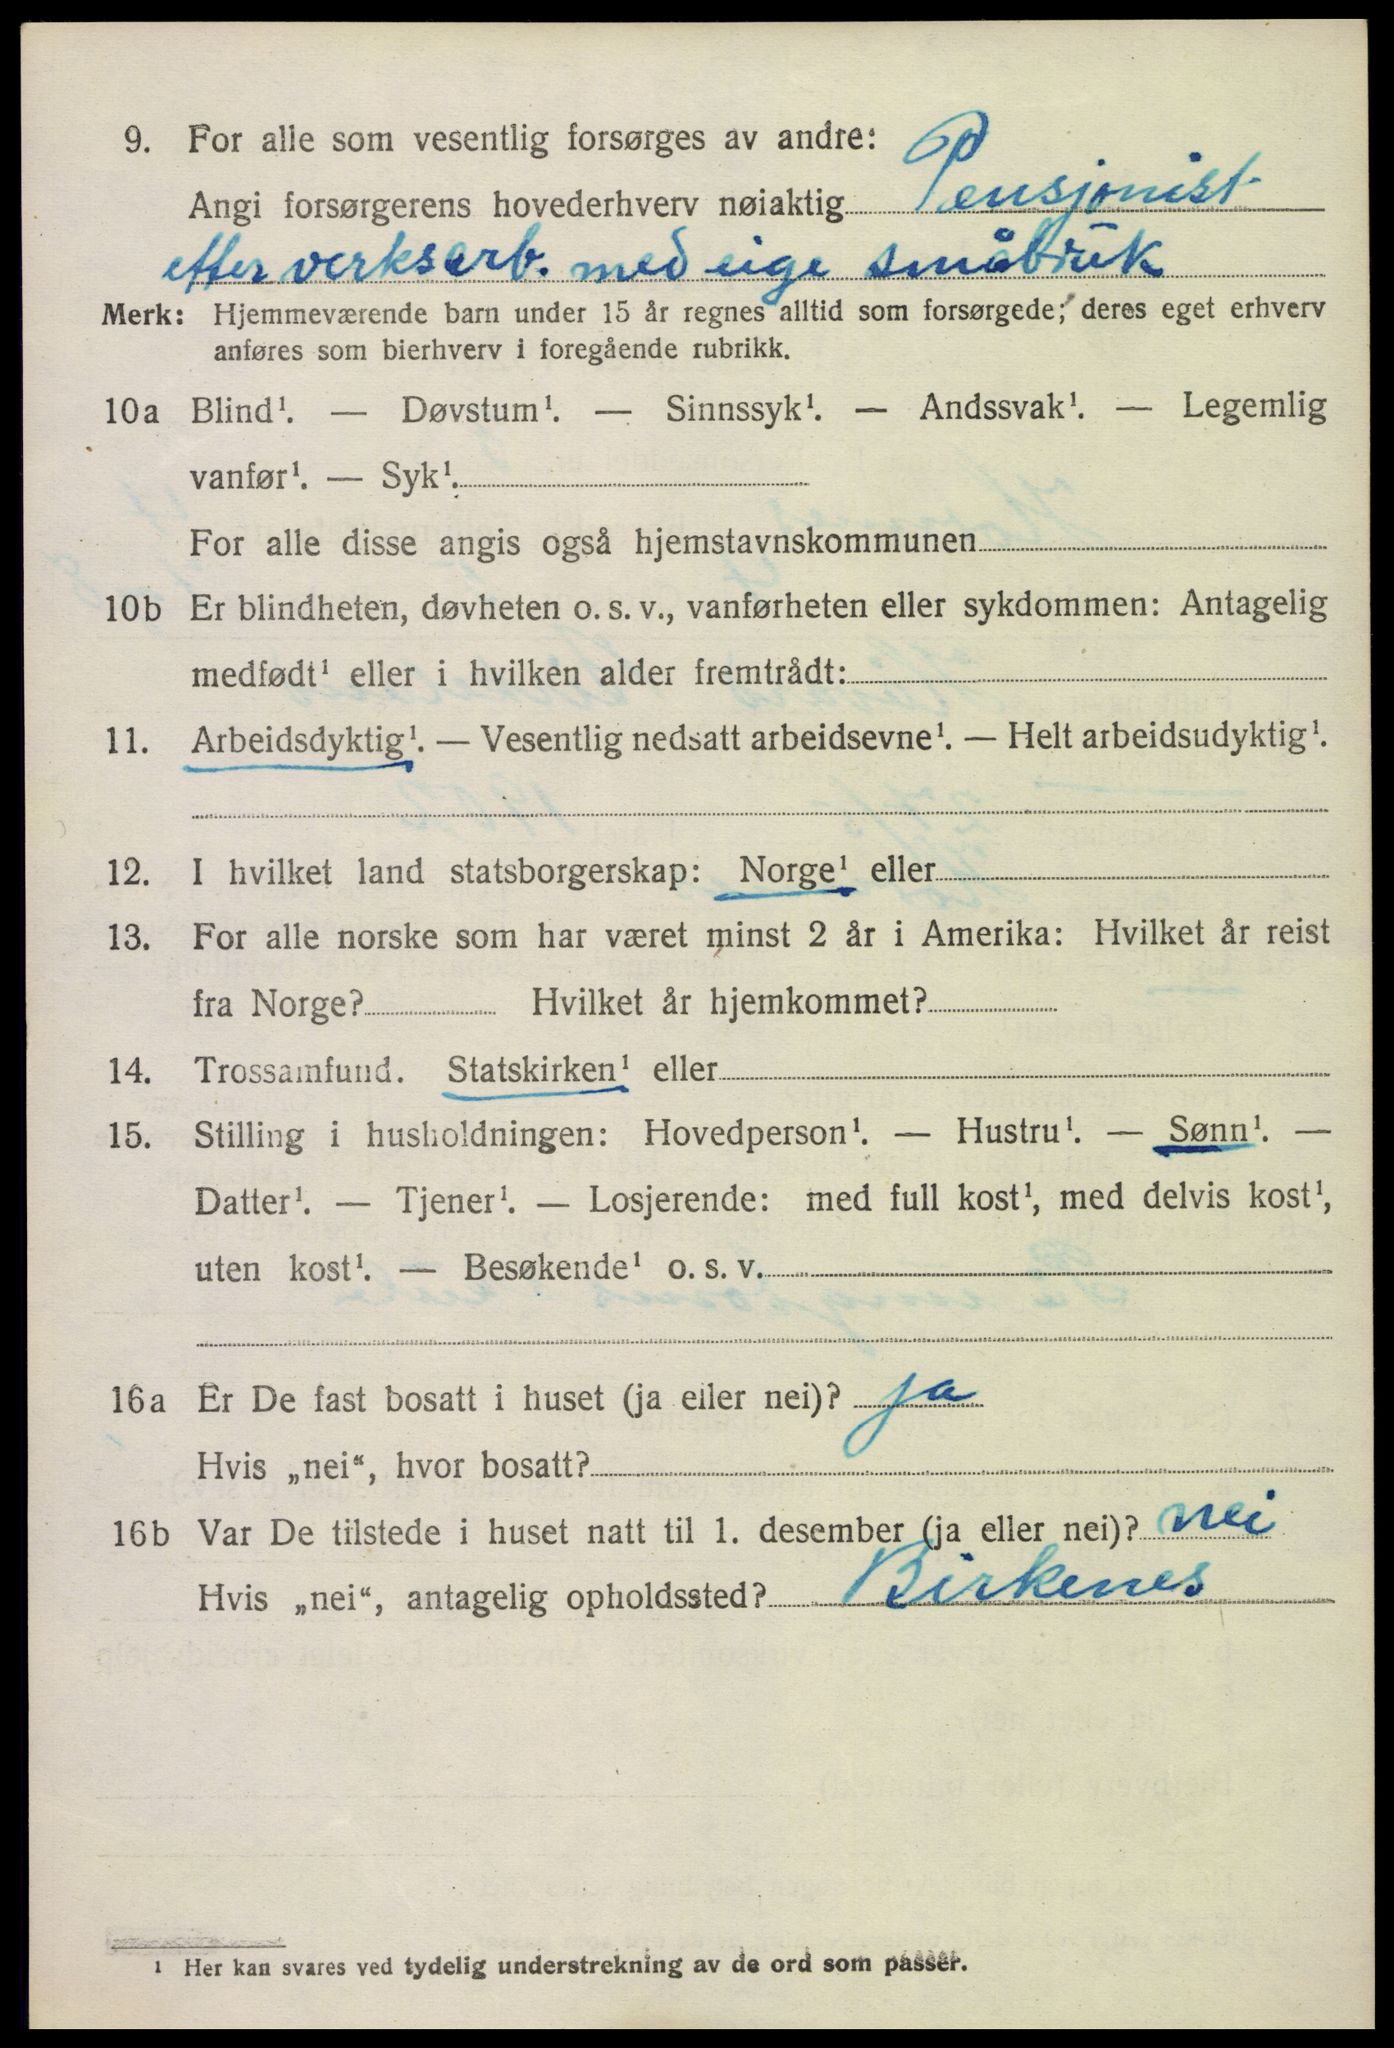 9. For alle som vesentlig forsørges av andre:
Angi forsørgerens hovederhverv nøiaktig Pensjonist
efter verksarb. med eige småbruk
Merk: Hjemmeværende barn under 15 år regnes alltid som forsørgede; deres eget erhverv
anføres som bierhverv i foregående rubrikk.
10a Blind¹. — Døvstum¹. — Sinnssyk¹. — Andssvak¹. — Legemlig
vanfør¹. — Syk¹.
For alle disse angis også hjemstavnskommunen
10b Er blindheten, døvheten o. s. v., vanførheten eller sykdommen: Antagelig
medfødt¹ eller i hvilken alder fremtrådt:
11. Arbeidsdyktig¹. — Vesentlig nedsatt arbeidsevne¹. — Helt arbeidsudyktig¹.
12. I hvilket land statsborgerskap: Norge¹ eller
13. For alle norske som har været minst 2 år i Amerika: Hvilket år reist
fra Norge? Hvilket år hjemkommet?
14. Trossamfund. Statskirken¹ eller
15. Stilling i husholdningen: Hovedperson¹. — Hustru¹. — Sønn¹. —
Datter¹. — Tjener¹. — Losjerende: med full kost¹, med delvis kost¹,
uten kost¹. — Besøkende¹ o. s. v.
16a Er De fast bosatt i huset (ja eller nei)? ja
Hvis „nei“, hvor bosatt?
16b Var De tilstede i huset natt til 1. desember (ja eller nei)? nei
Hvis „nei“, antagelig opholdssted? Birkenes
¹ Her kan svares ved tydelig understrekning av de ord som passer.